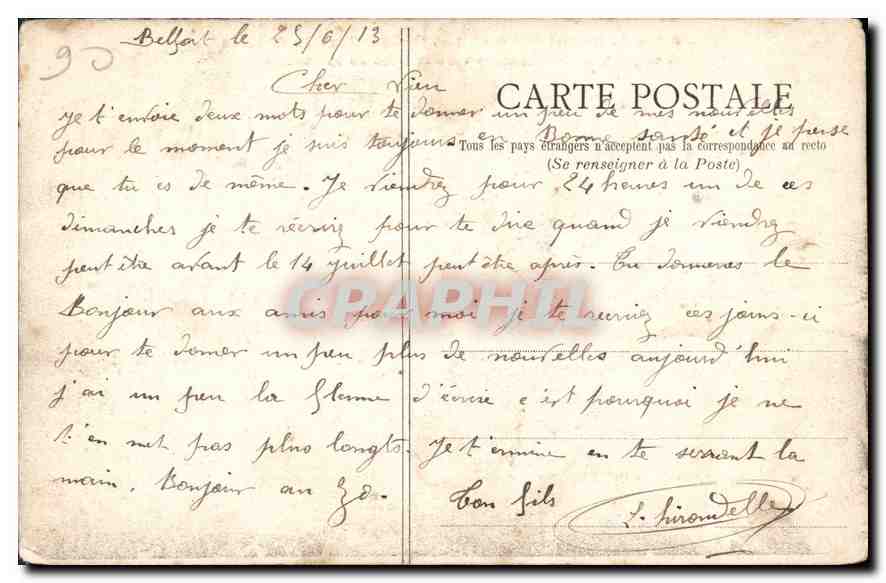 90
Belfort le 25/6/13
Cher Vieu
CARTE POSTALE
Je t'envoie deux mots pour te donner un peu de mes nouvelles
pour le moment je suis toujours en Bonne santé et je pense
Tous les pays étrangers n'acceptent pas la correspondance au recto
(Se renseigner à la Poste)
que tu es de même. Je viendrez pour 24 heures un de ces
dimanches je te récrirez pour te dire quand je viendrez
peut être avant le 14 juillet peut être après. Tu donneras le
Bonjour aux amis pour moi je te recrirez ces jours-ci
CPAPHIL
pour te donner un peu plus de nouvelles aujourd'hui
j'ai un peu la flemme d'écrire c'est pourquoi je ne
t'en met pas plus longts. Je t'ermine en te serrant la
main. Bonjour au
Ton fils
L. hirondelle